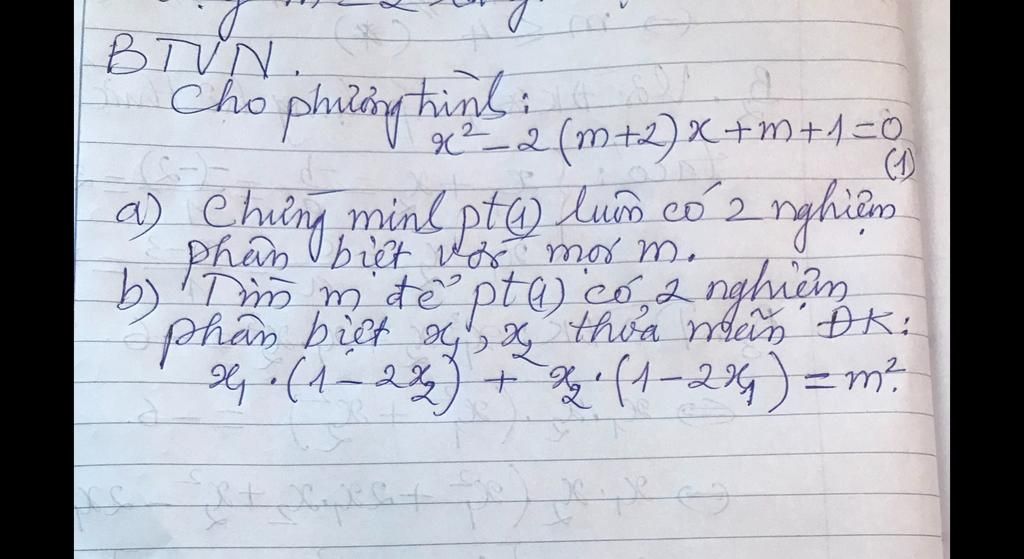 BTVN.
Cho phương trình:
x² - 2(m+2)x + m + 1 = 0
(1)
a) Chứng minh pt(1) luôn có 2 nghiệm
phân biệt với mọi m.
b) Tìm m để pt(1) có 2 nghiệm
phân biệt x₁, x₂ thỏa mãn ĐK:
x₁.(1 - 2x₂) + x₂.(1 - 2x₁) = m².